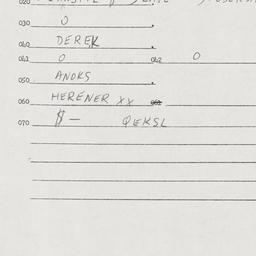 020
030 0 .
040 DEREK .
041 0 042 0
050 ANDKS .
060 HERENER XX
070 $ — QEKSL